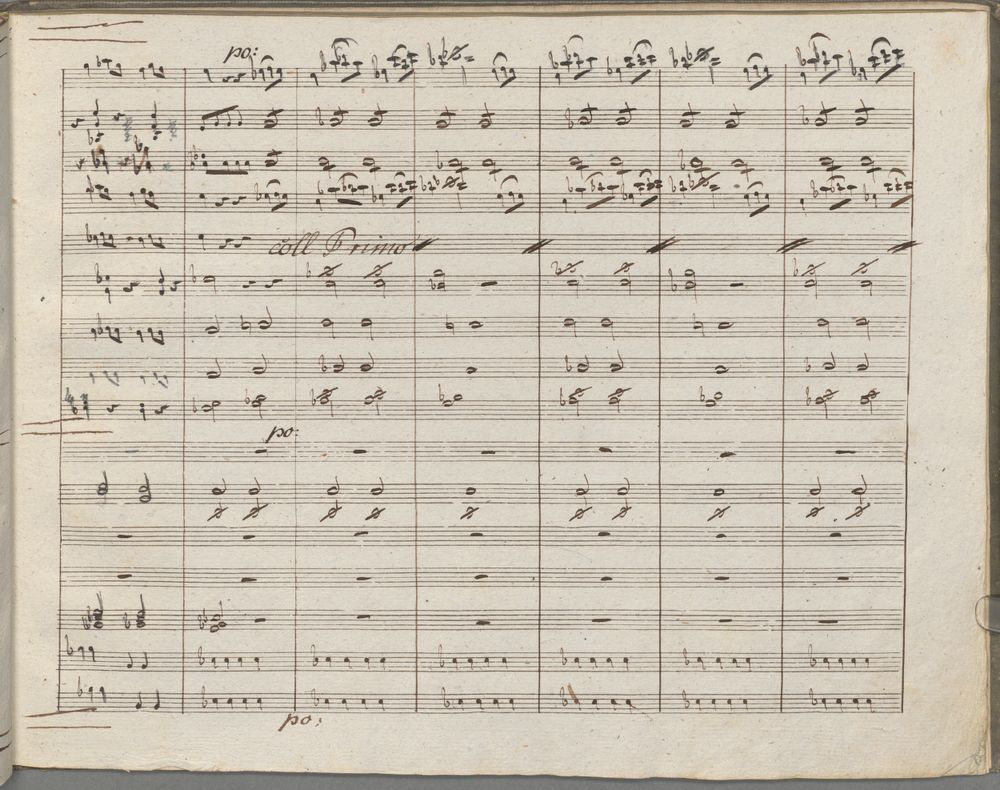 po:
coll Primo
po:
po: